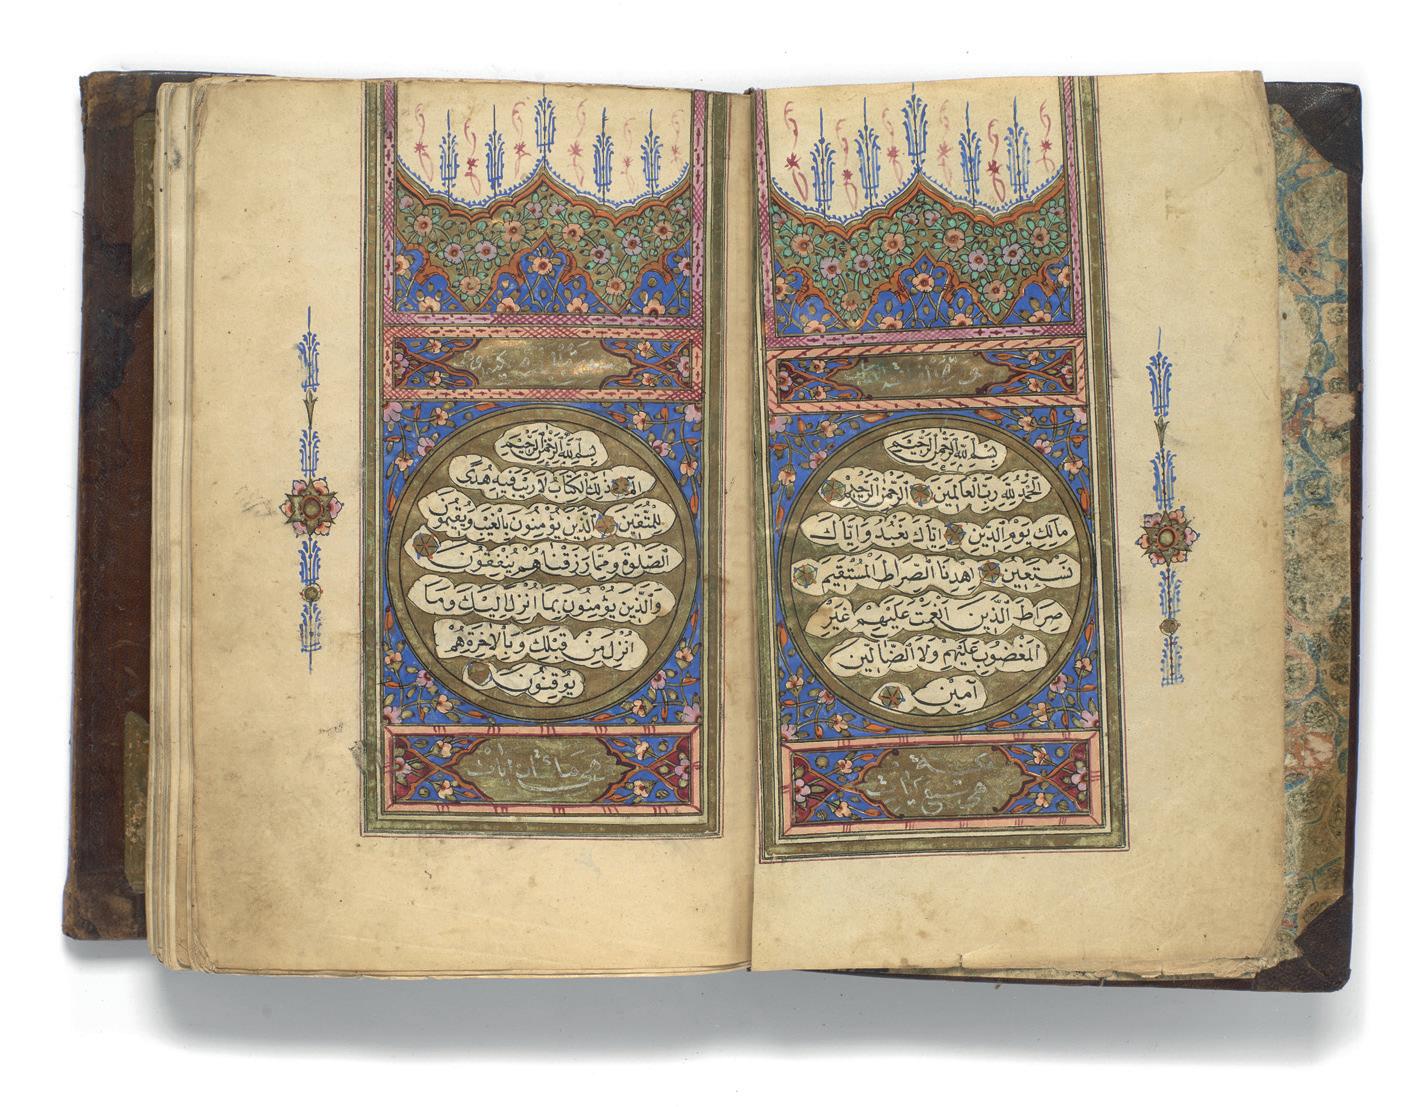 بسم الله الرحمن الرحيم
الحمد لله رب العالمين الرحمن الرحيم
مالك يوم الدين اياك نعبد واياك
نستعين اهدنا الصراط المستقيم
صراط الذين انعمت عليهم غير
المغضوب عليهم ولا الضالين
آمين
بسم الله الرحمن الرحيم
الم ذلك الكتاب لا ريب فيه هدى
للمتقين الذين يؤمنون بالغيب ويقيمون
الصلوة ومما رزقناهم ينفقون
والذين يؤمنون بما انزل اليك وما
انزل من قبلك وبالآخرة هم
يوقنون